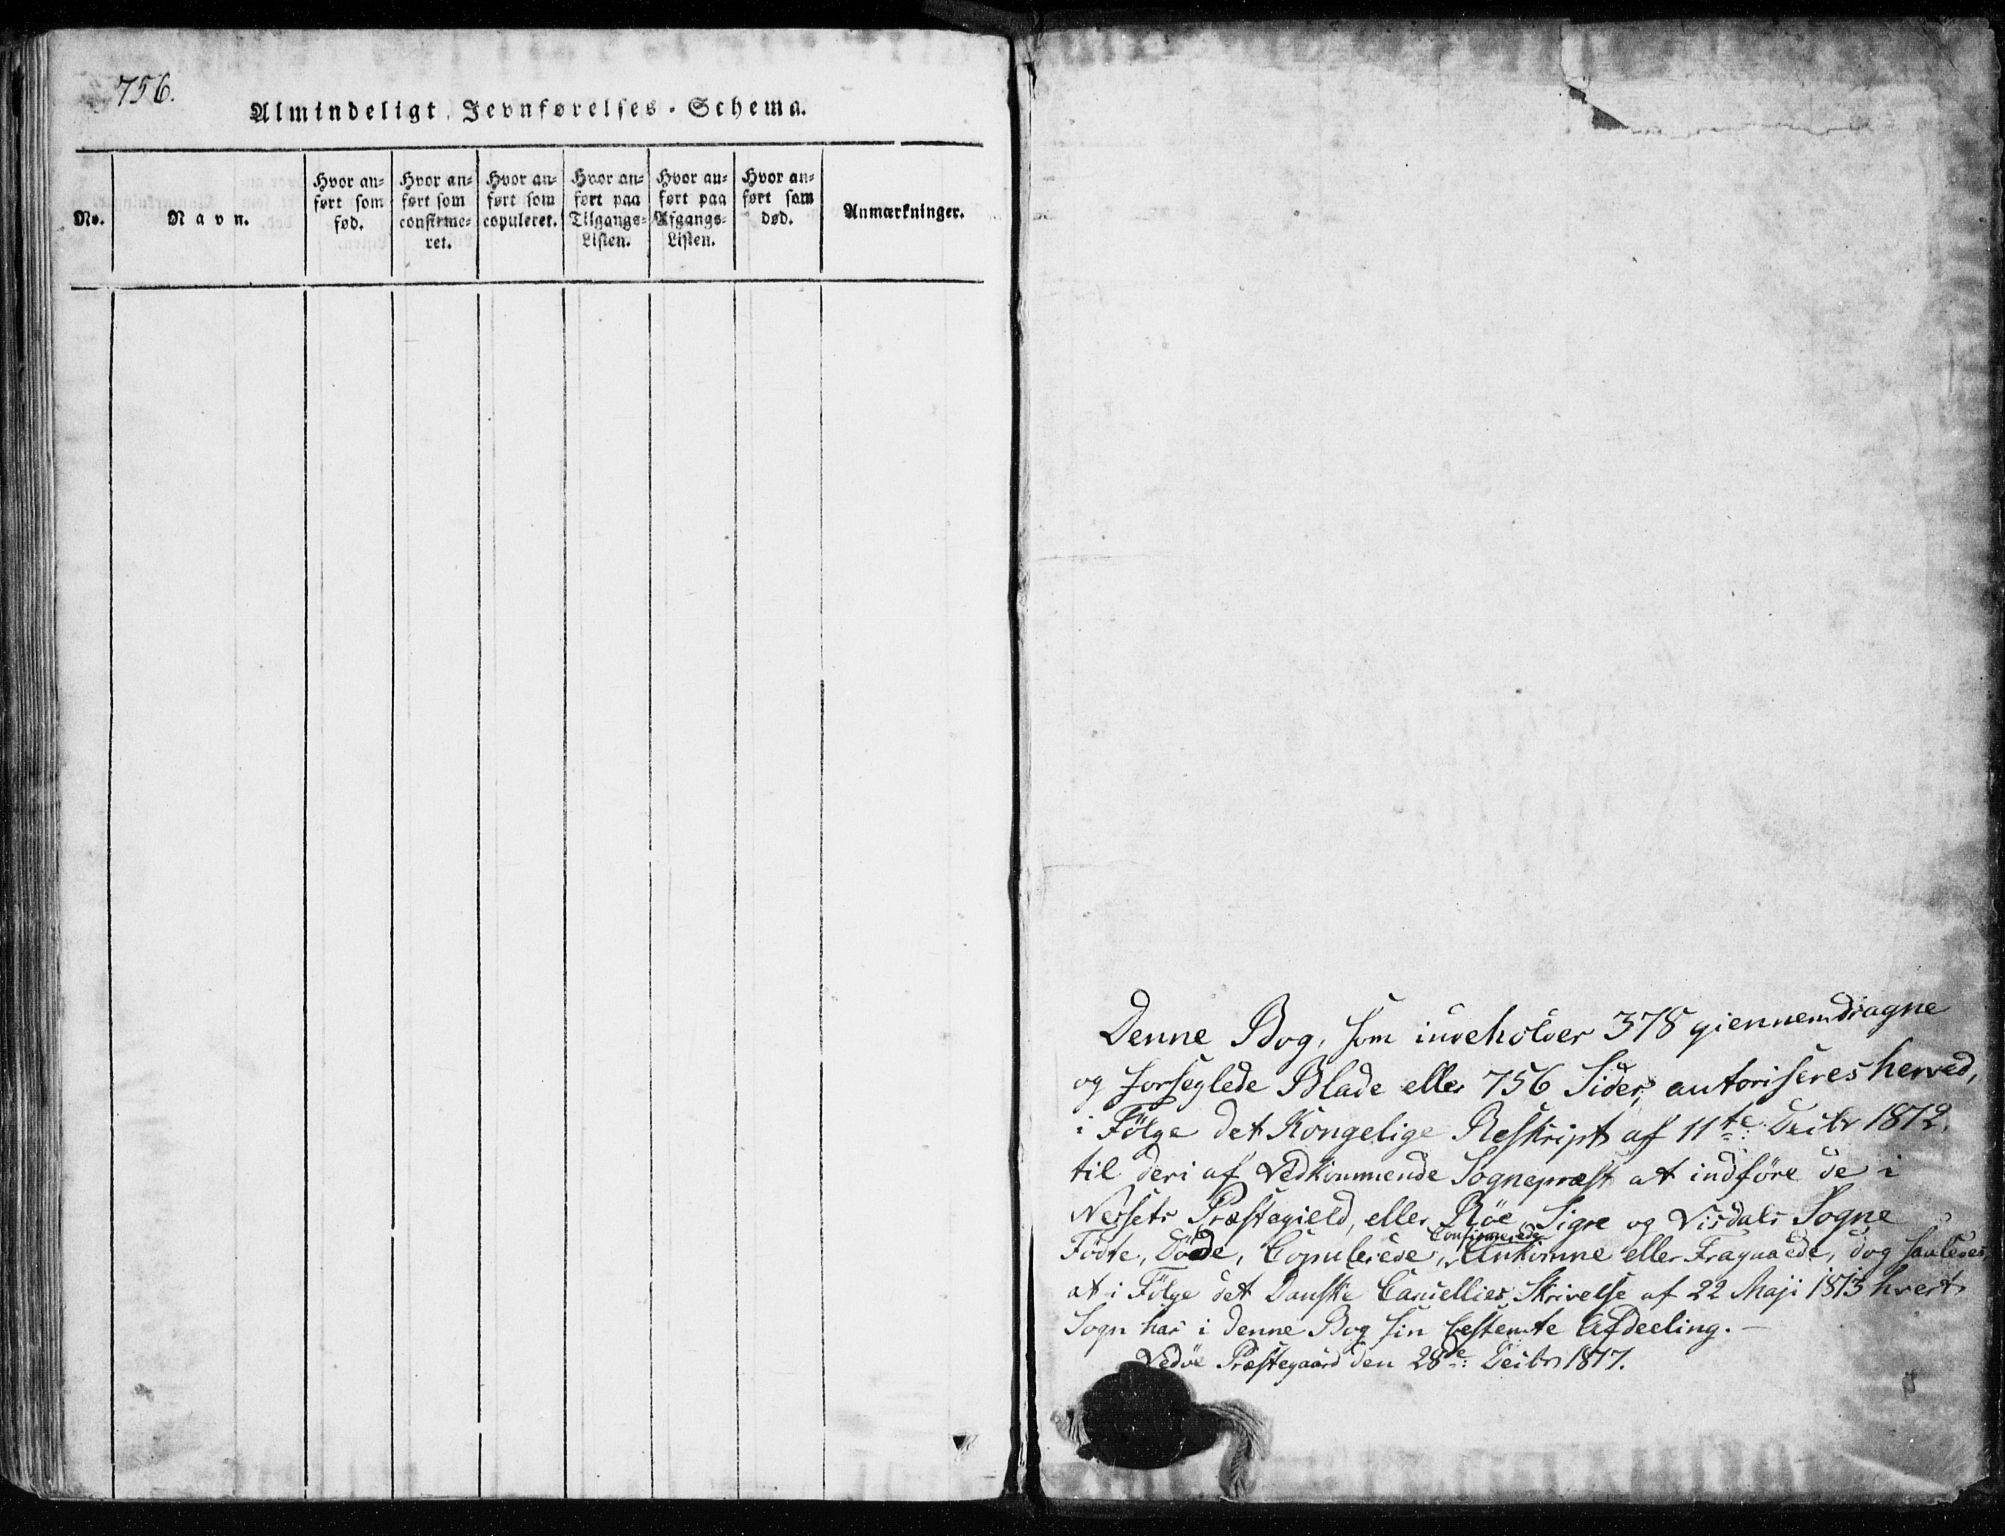 756.
Almindeligt Jevnførelses-Schema.
No.
Navn.
Hvor an-
ført som
fød.
Hvor an-
ført som
confirme-
ret.
Hvor an-
ført som
copuleret.
Hvor an-
ført paa
Tilgangs-
Listen.
Hvor an-
ført paa
Afgangs-
Listen.
Hvor an-
ført som
død.
Anmærkninger.
Denne Bog, som indeholder 378 giennemdragne
og forseglede Blade eller 756 Sider, autoriseres herved,
i Følge det Kongelige Reskript af 11te Decbr 1812,
til deri af Vedkommende Sognepræst at indføre de i
Nessets Præstegield, eller Røe, Sigre og Visdals Sogne
Confirmerede
Fødte, Døde, Copulerede, Ankomne eller Fragaaede, dog saaledes,
at i Følge det Danske Cancellies Skrivelse af 22 Maji 1813 hvert
Sogn har i denne Bog sin bestemte Afdeeling. —
Vedøe Præstegaard den 28de: Decbr 1817.